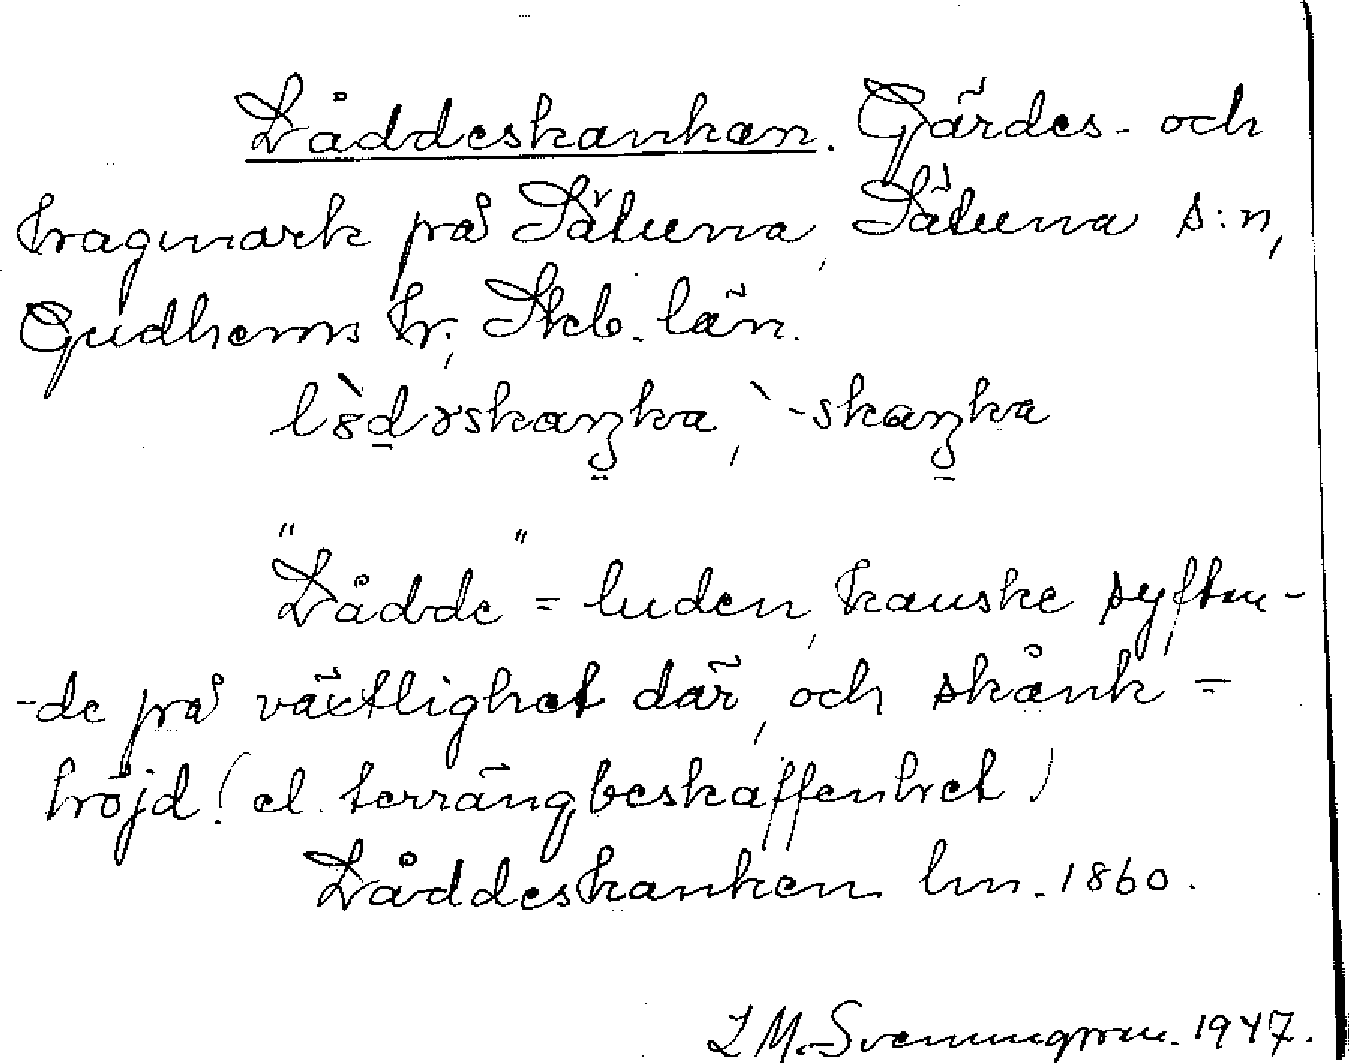 Låddeskankan. Gärdes- och
hagmark på Sätuna, Sätuna s:n,
Gudhems hr., Skb. län.
"Lådde" = luden, kanske syftan-
-de på växtlighet där, och skånk =
höjd (el. terrängbeskaffenhet)
Låddeskanken lm. 1860.
L M. Svenungsson. 1947.